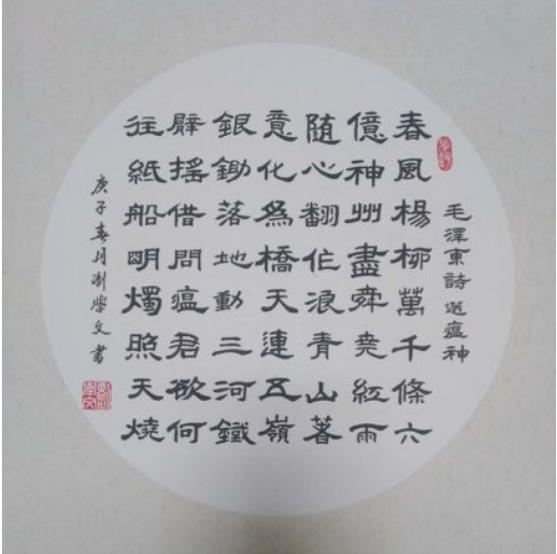 毛澤東詩 送瘟神
春風楊柳萬千條六
億神州盡舜堯紅雨
随心翻作浪青山著
意化爲橋天連五嶺
銀鋤落地動三河鐵
臂搖借問瘟君欲何
往紙船明燭照天燒
庚子春月劉學文書